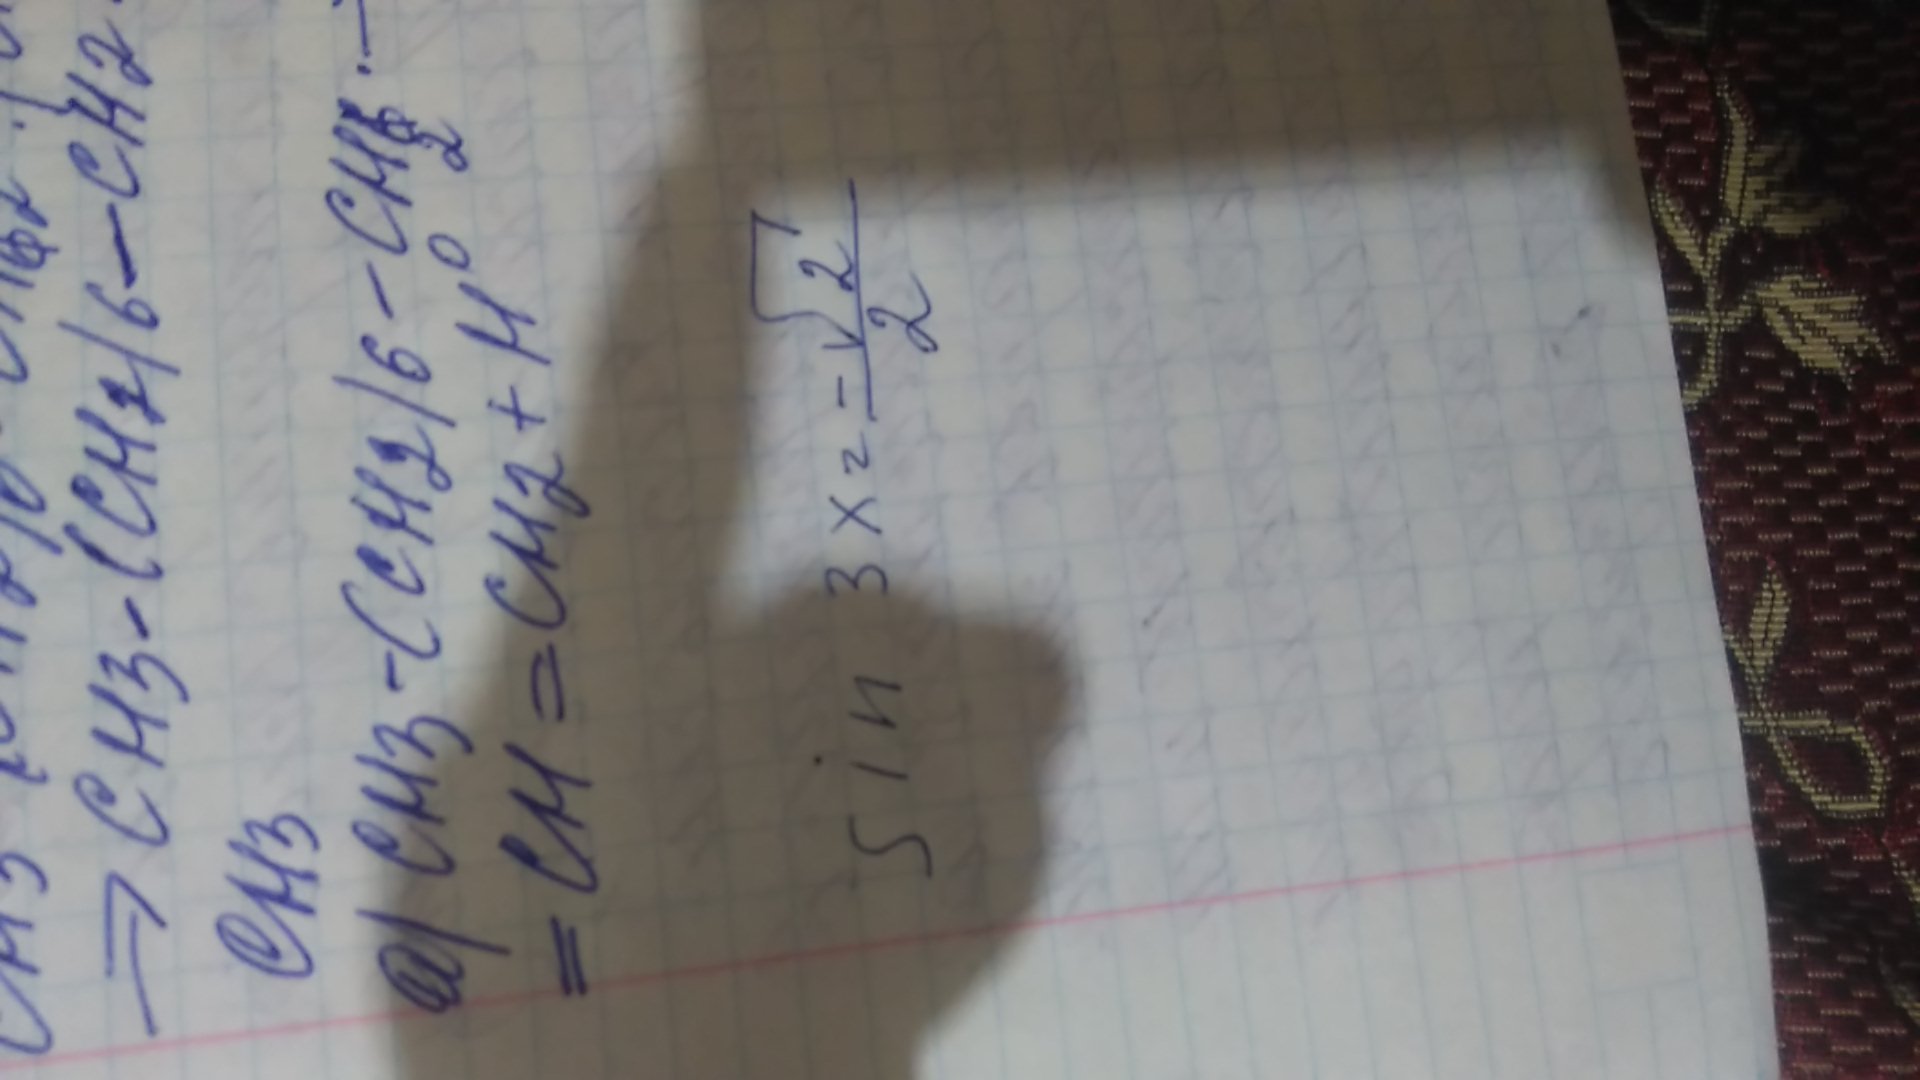 → CH3-(CH2)6-CH2
CH3
a) CH3-(CH2)6-CH2-
=CH=CH2+H⁰
sin 3x = -√2/2